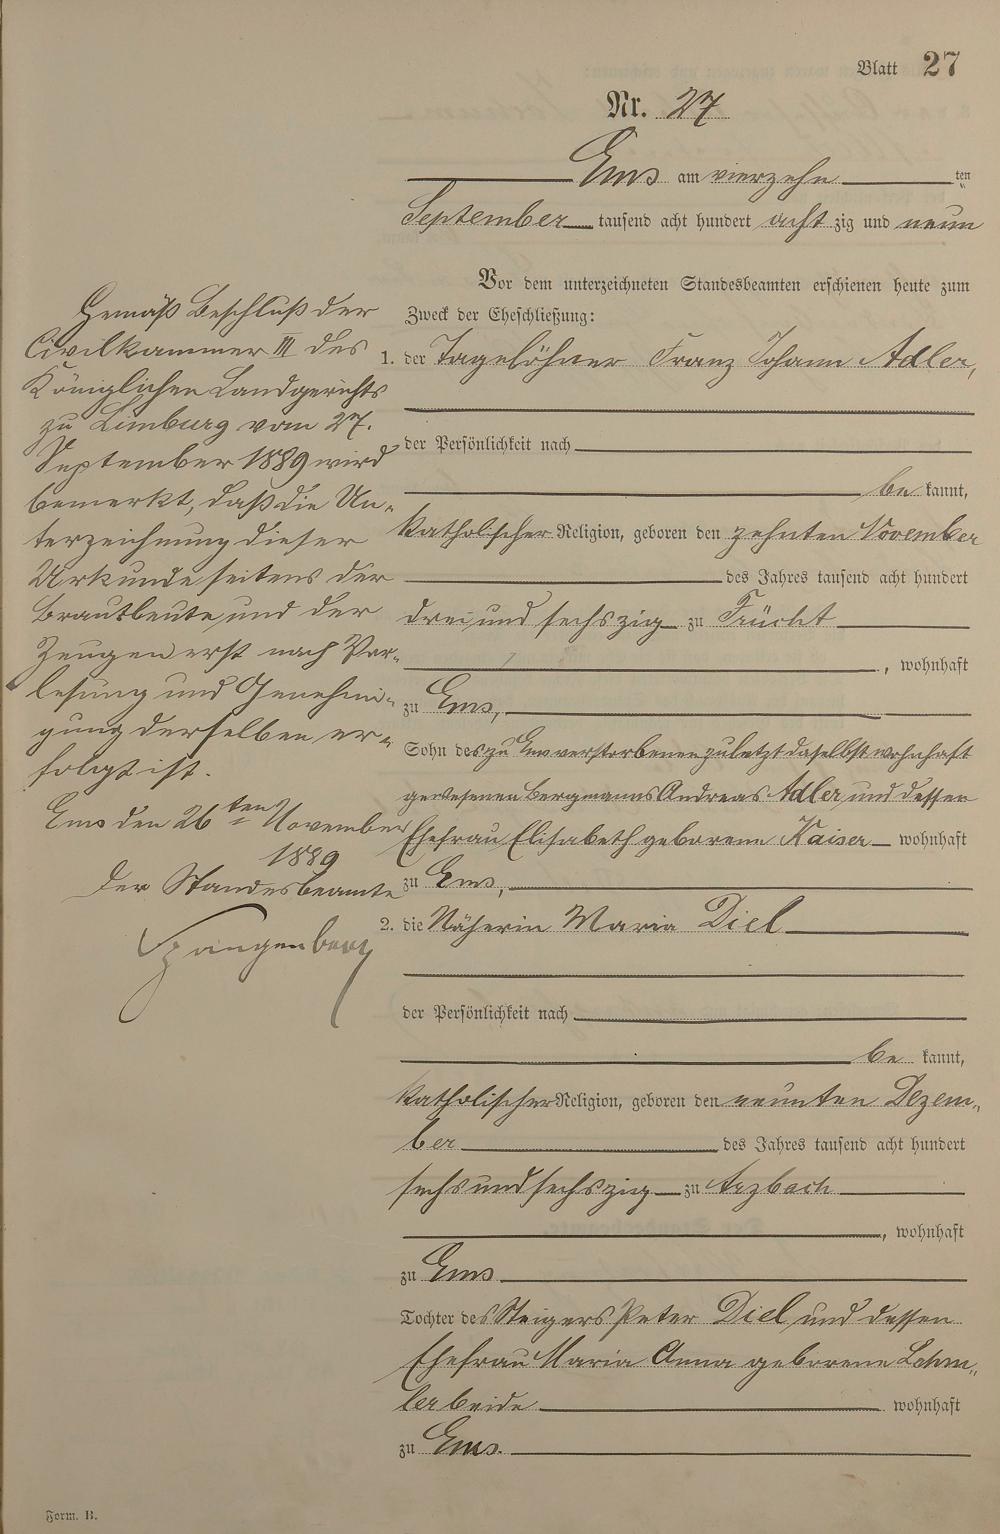 Blatt 27
Nr. 27
Ems am vierzehn ten
September tausend acht hundert acht zig und neun
Vor dem unterzeichneten Standesbeamten erschienen heute zum
Zweck der Eheschließung:
1. der Tagelöhner Franz Johann Adler,
der Persönlichkeit nach
be kannt,
katholischer Religion, geboren den zehnten November
des Jahres tausend acht hundert
drei und sechszig zu Frücht
, wohnhaft
zu Ems,
Sohn des zu Ems verstorbenen zuletzt daselbst wohnhaft
gewesenen Bergmanns Andreas Adler und dessen
Ehefrau Elisabeth geborene Kaiser wohnhaft
zu Ems,
2. die Näherin Maria Diel
der Persönlichkeit nach
be kannt,
katholischer Religion, geboren den neunten Dezem-
ber des Jahres tausend acht hundert
sechs und sechszig zu Arzbach
, wohnhaft
zu Ems
Tochter des Steigers Peter Diel und dessen
Ehefrau Maria Anna geborene
beide wohnhaft
zu Ems.
Gemäß Beschluß der
Civilkammer III des
Königlichen Landgerichts
zu Limburg vom 27.
September 1889 wird
bemerkt, daß die Un-
terzeichnung dieser
Urkunde seitens der
Brautleute und der
Zeugen erst nach Vor-
lesung und Genehmi-
gung derselben er-
folgt ist.
Ems den 26ten November
1889
Der Standesbeamte
Spangenberg
Form. B.